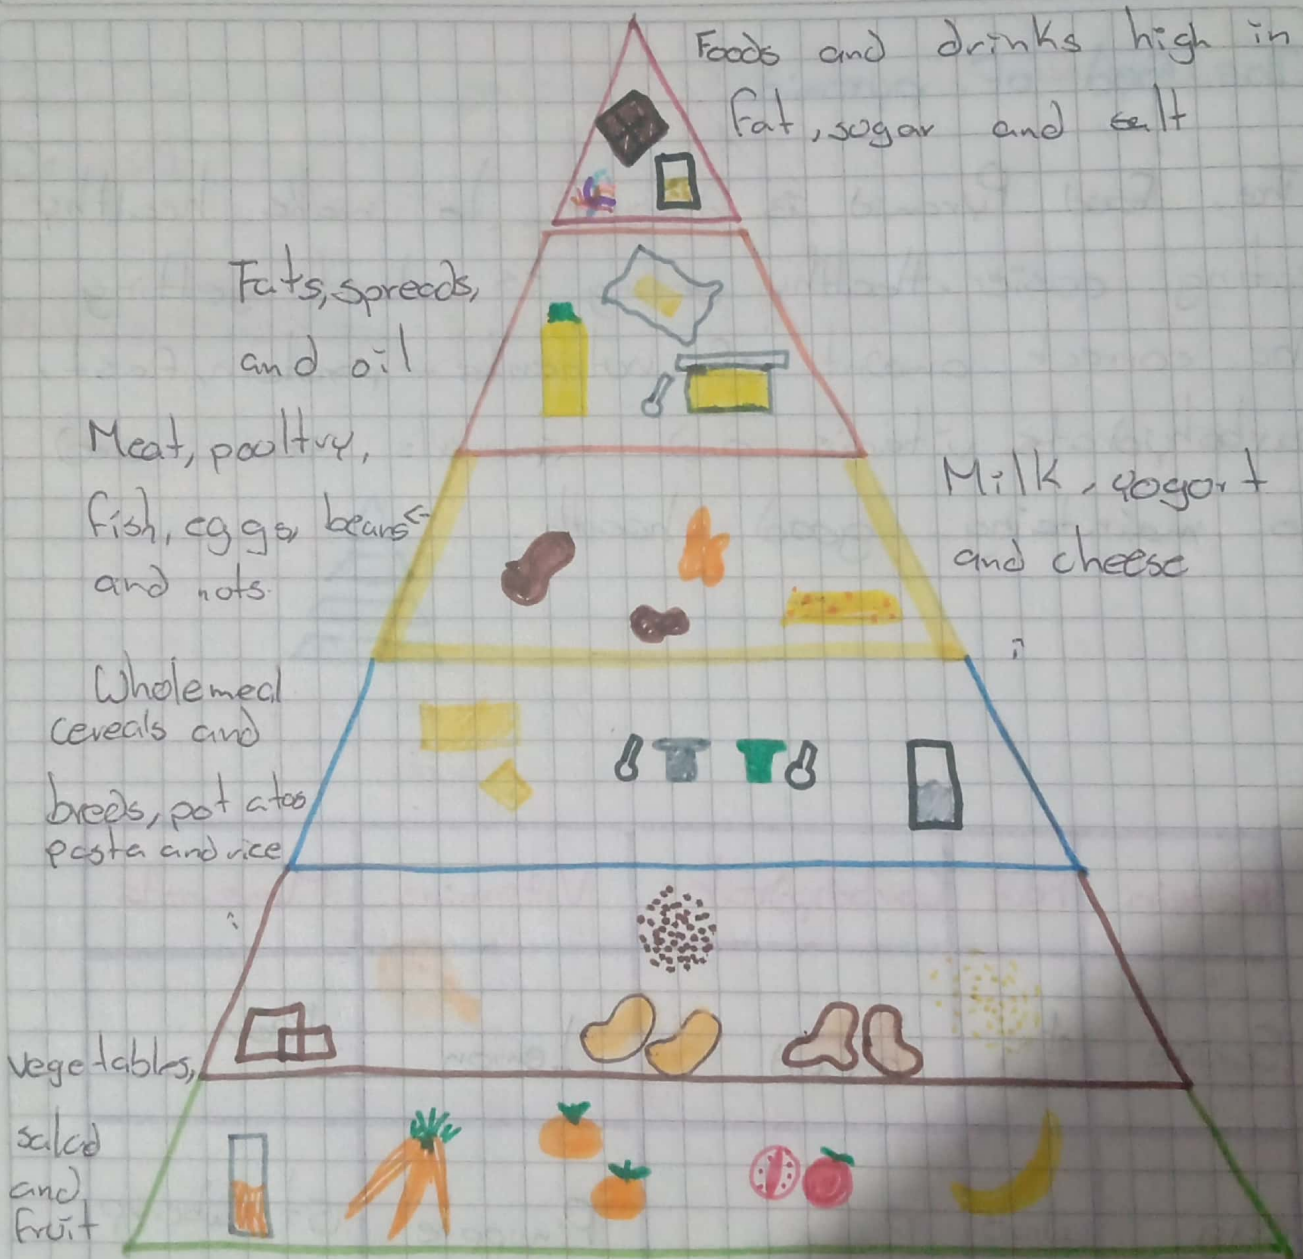 Foods and drinks high in
fat, sogar and salt
Fats, spreads,
and oil
Meat, pooltry,
fish, eggs, beans
and nots.
Milk, yogort
and cheese
Wholemeal
cereals and
breeds, potatos
pasta and rice
vegetables,
salad
and
fruit